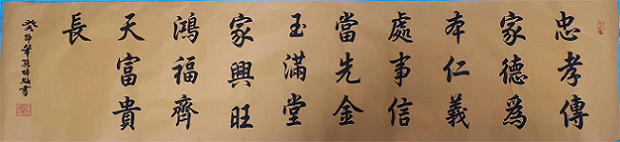 忠孝傳
家德為
本仁義
處事信
當先金
玉滿堂
家興旺
鴻福齊
天富貴
長
癸卯年 書